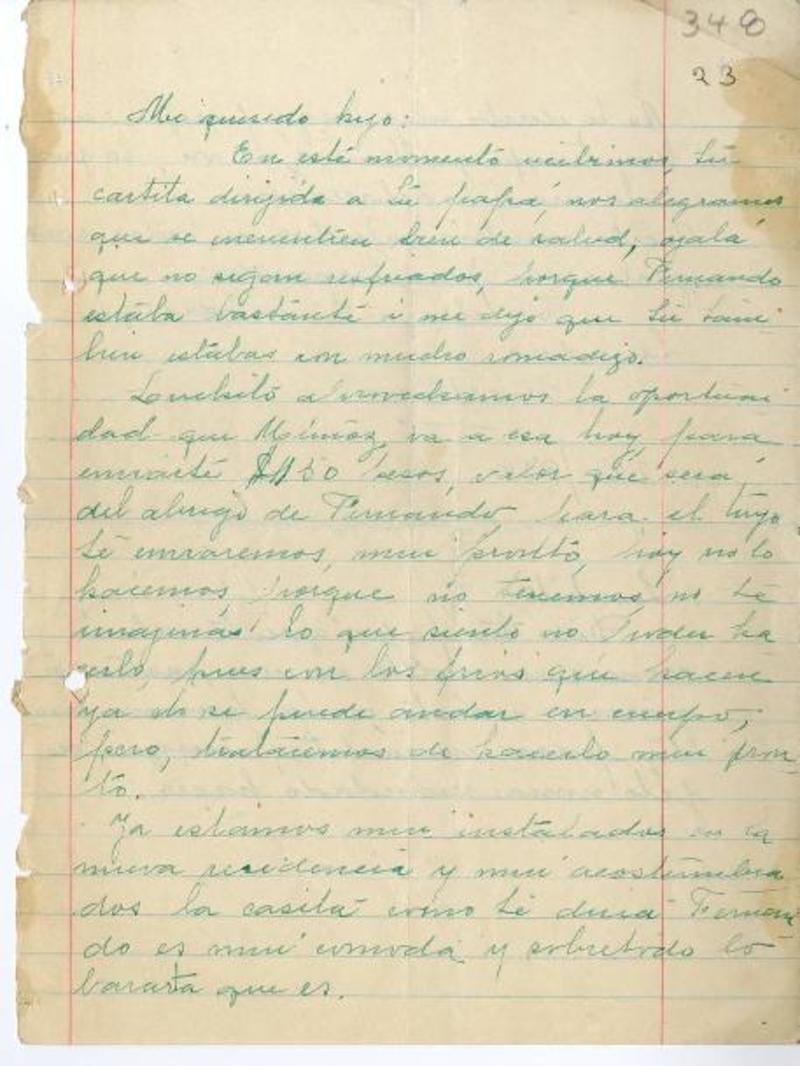 348
23
Mi querido hijo:
En este momento recibimos tu
cartita dirigida a tu papá, nos alegramos
que se encuentren bien de salud, ojalá
que no sigan resfriados, porque Fernando
estaba bastante i me dijo que tu tam
bien estabas con mucho romadizo.
Luchito aprovechamos la oportuni
dad que Muñoz va a esa hoy, para
enviarte $150 pesos, valor que será
del abrigo de Fernando, para el tuyo
te enviaremos, mui pronto, hoy no lo
hacemos, porque no tenemos, no te
imajinas lo que siento no poder ha
cerlo, pues con los frios que hacen
ya no se puede andar en cuerpo,
pero, trataremos de hacerlo mui pron
to.
Ya estamos mui instalados en la
nueva residencia y mui acostumbra
dos la casita como te diria Fernan
do es mui comoda y sobretodo lo
barata que es.